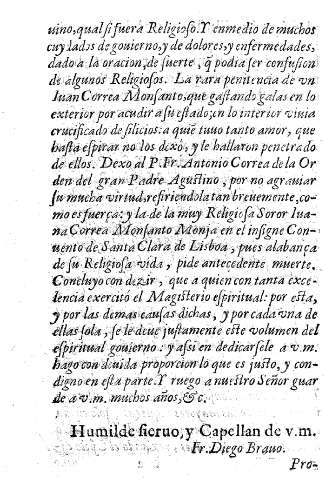 uino, qual si fuera Religioso. Y en medio de muchos
cuydados de gouierno, y de dolores, y enfermedades,
dado a la oracion, de suerte, q̃ podia ser confusion
de algunos Religiosos. La rara penitencia de vn
Iuan Correa Monsanto, que gastando galas en lo
exterior por acudir a su estado, en lo interior viuia
crucificado de silicios: a quiẽ tuuo tanto amor, que
hasta espirar no los dexó, y le hallaron penetrado
de ellos. Dexo al P. Fr. Antonio Correa de la Or
den del gran Padre Agustino, por no agrauiar
su mucha virtud, refiriendola tan breuemente, co-
mo es fuerça: y la de la muy Religiosa Soror Iua-
na Correa Monsanto Monja en el insigne Con-
uento de Santa Clara de Lisboa, pues alabança
de su Religiosa vida, pide antecedente muerte.
Concluyo con dezir, que a quien con tanta exce-
lencia exercitó el Magisterio espiritual: por esta,
y por las demas causas dichas, y por cada vna de
ellas sola, se le deue justamente este volumen del
espiritual gouierno: y assi en dedicarsele a v.m.
hago con deuida proporcion lo que es justo, y con-
digno en esta parte. Y ruego a nuestro Señor guar
de a v.m. muchos años, &c.
Humilde sieruo, y Capellan de v.m.
Fr. Diego Brauo.
Pro-